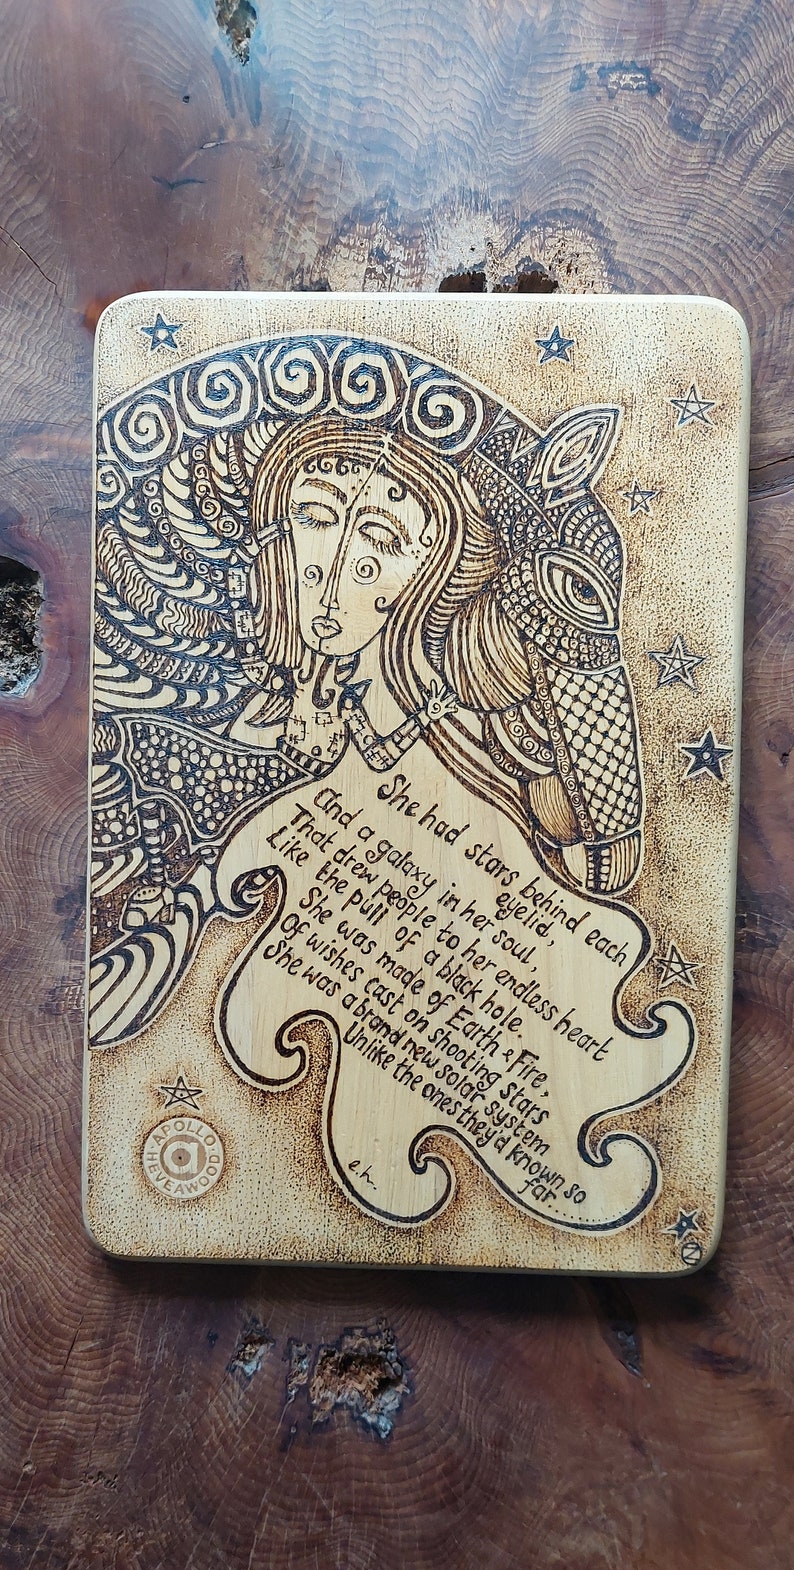 She had stars behind each
eyelid,
And a galaxy in her soul,
That drew people to her endless heart
Like the pull of a black hole.
She was made of Earth & Fire,
Of wishes cast on shooting stars
She was a brand new solar system
Unlike the ones they'd known so
far......
e.h.
·APOLLO·
HEVEAWOOD
a
N